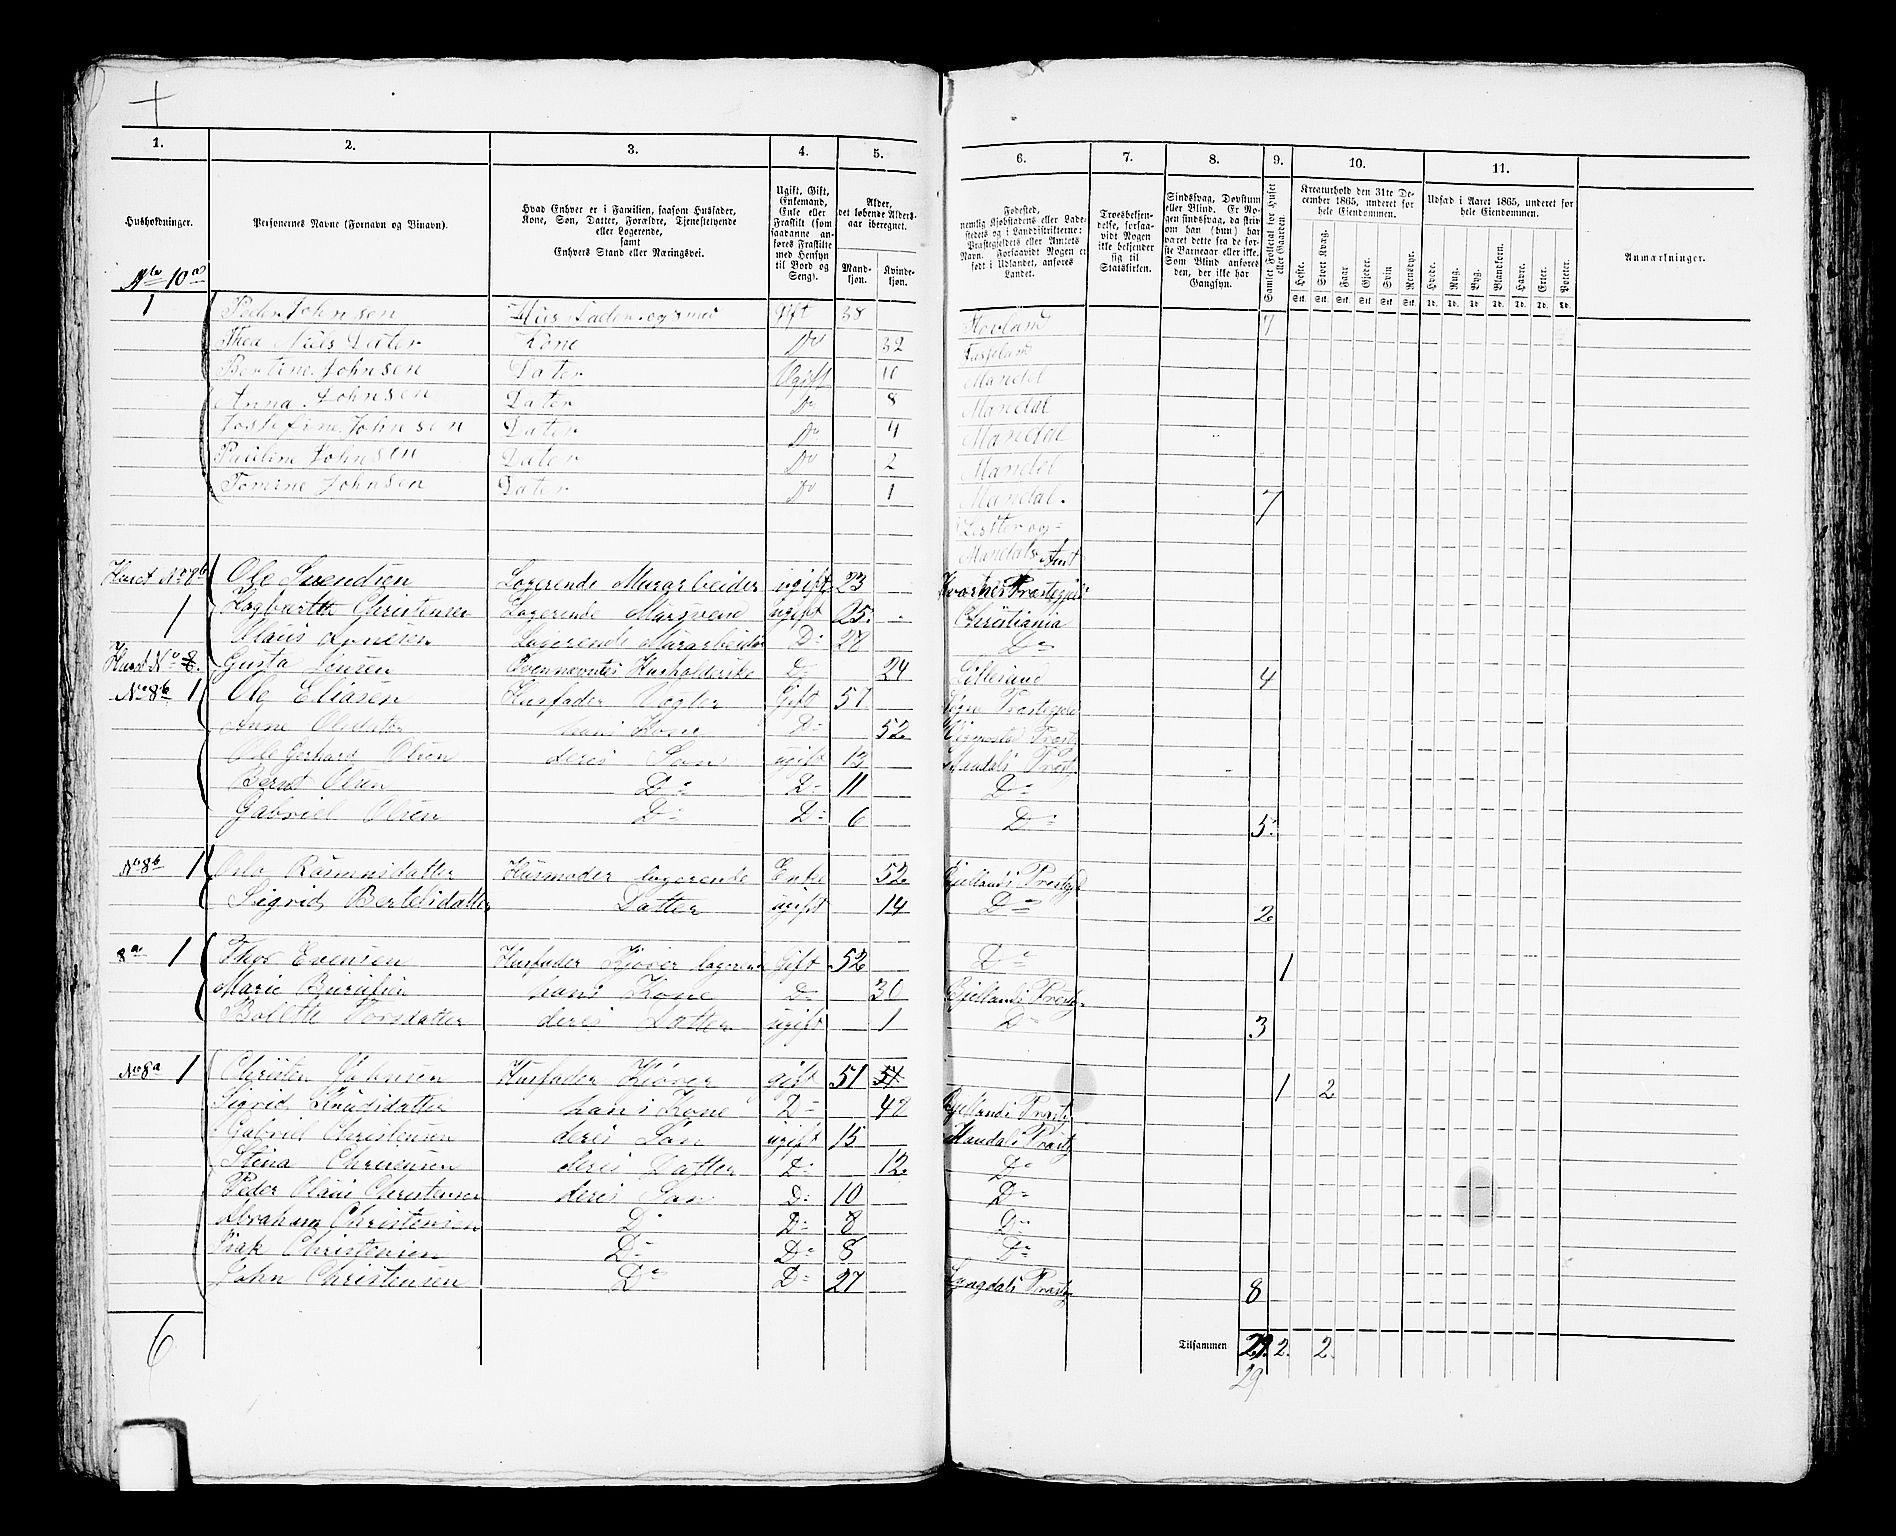 1. 2. 3. 4. 5. 6. 7. 8. 9. 10. 11.
Husholdninger.
Personernes Navne (Fornavn og Binavn).
Hvad Enhver er i Familien, saasom Husfader,
Kone, Søn, Datter, Forældre, Tjenestetyende
eller Logerende,
samt
Enhvers Stand eller Næringsvei.
Ugift, Gift,
Enkemand,
Enke eller
Fraskilt (som
saadanne an-
føres Fraskilte
med Hensyn
til Bord og
Seng).
Alder,
det løbende Alders-
aar iberegnet.
Mand-
kjøn.
Kvinde-
kjøn.
Fødested,
nemlig Kjøbstadens eller Lade-
stedets og i Landdistrikterne:
Præstegjeldets eller Amtets
Navn. Forsaavidt Nogen er
født i Udlandet, anføres
Landet.
Troesbekjen-
delse, forsaa-
vidt Nogen
ikke bekjender
sig til
Statskirken.
Sindssvag, Døvstum
eller Blind. Er No-
gen sindssvag, da skriv
om han (hun) har
været dette fra de før-
ste Barneaar eller ikke.
Som Blind anføres
den, der ikke har
Gangsyn.
Samlet Folketal for Huset
eller Gaarden.
Kreaturhold den 31te De-
cember 1865, underet for
hele Eiendommen.
Heste. Stort Kvæg. Faar. Gjeder. Svin. Rensdyr.
Stk. Stk. Stk. Stk. Stk. Stk.
Udsæd i Aaret 1865, underet for
hele Eiendommen.
Hvede. Rug. Byg. Blandkorn. Havre. Erter. Poteter.
Td. Td. Td. Td. Td. Td. Td.
Anmærkninger.
No 10a
1 Peder Johnsen Hus Fader Gift 38 7
Thea Niels Dater Kone Do 32
Bertine Johnsen Dater Ugift 10 Mandal
Anna Johnsen Dater Do 8 Mandal
Josefine Johnsen Dater Do 4 Mandal
Pauline Johnsen Dater Do 2 Mandal
Tomine Johnsen Dater Do 1 Mandal. 7
Lister og
Mandals Amt
Huset No 8b Ole Svendsen Logerende Murarbeider ugift 23
1 Christensen Logerende Mursvend ugift 25. Christiania
Olaus Logerende Murarbeider D- 27 Do
Huset No 8. Gusta Jensen D- 24 4
No 8b 1 Ole Eliasen Husfader Gift 57
Anne Olsdatter hans Kone D- 52
Ole Gerhard Olsen deres Søn ugift 13 Mandals Præstg
Berent Olsen Do D- 11 Do
Gabriel Olsen Do D- 6 Do 5
No 8b 1 Husmoder logerende Enke 52 Bjellands
Sigrid Bertelsdatter Datter ugift 14 Do 2
8a 1 Thor Evensen Husfader Kjører Gift 52 Do 1
Marie hans Kone D- Bjellands Præstg
Bolette Torsdatter deres Datter ugift 1 Do 3
No 8a 1 Christen Johnsen Husfader Kjører gift 51 51 1 2
Sigrid Knudsdatter hans Kone D- 47 Bjellands Præstg
Gabriel Christensen deres Søn ugift 15 Mandals Præstg
Stina Christensen deres Datter D- 12 Do
Peder Olaus Christensen deres Søn D- 10 Do
Abraham Christensen D- D- 8 Do
Isak Christensen D- D- 8 Do
John Christensen Do D- 27 Lyngdals Præstg 8
6
Tilsammen 29. 2. 2.
29